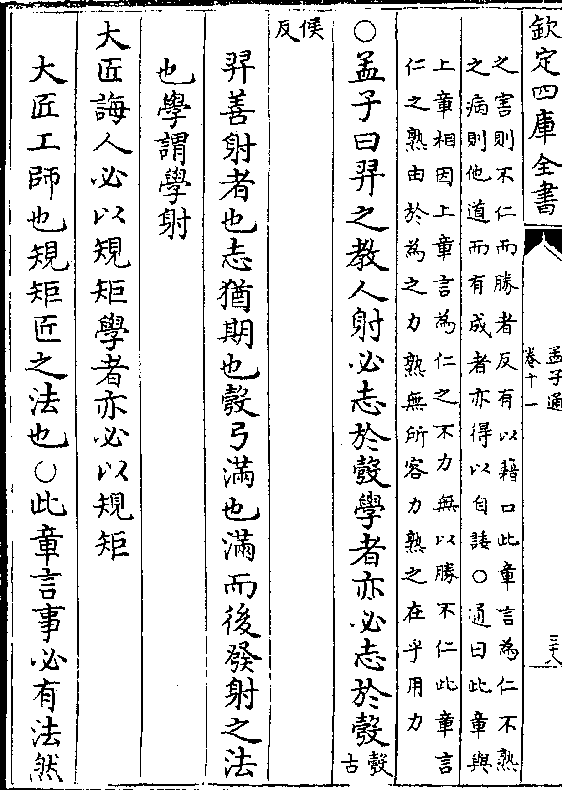 欽定四庫全書
孟子通
卷十一
三十八
之害則不仁而勝者反有以藉口此章言為仁不熟
之病則他道而有成者亦得以自諉○通曰此章與
上章相因上章言為仁之不力無以勝不仁此章言
仁之熟由於為之力熟無所容力熟之在乎用力
○孟子曰羿之教人射必志於彀學者亦必志於彀
彀古
侯反
羿善射者也志猶期也彀弓滿也滿而後發射之法
也學謂學射
大匠誨人必以規矩學者亦必以規矩
大匠工師也規矩匠之法也○此章言事必有法然